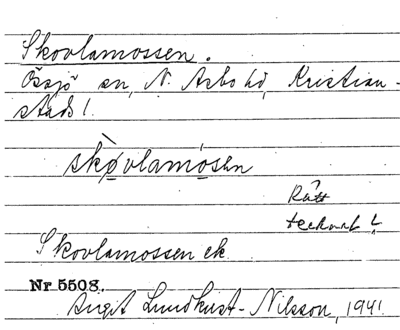 Skovlamossen.
Össjö sn, N. Åsbo hd, Kristian-
stads l.
skòvlamósen
Rätt
tecknat
Skovlamossen ek
Nr 5508.
Birgit Lundkvist-Nilsson, 1941.